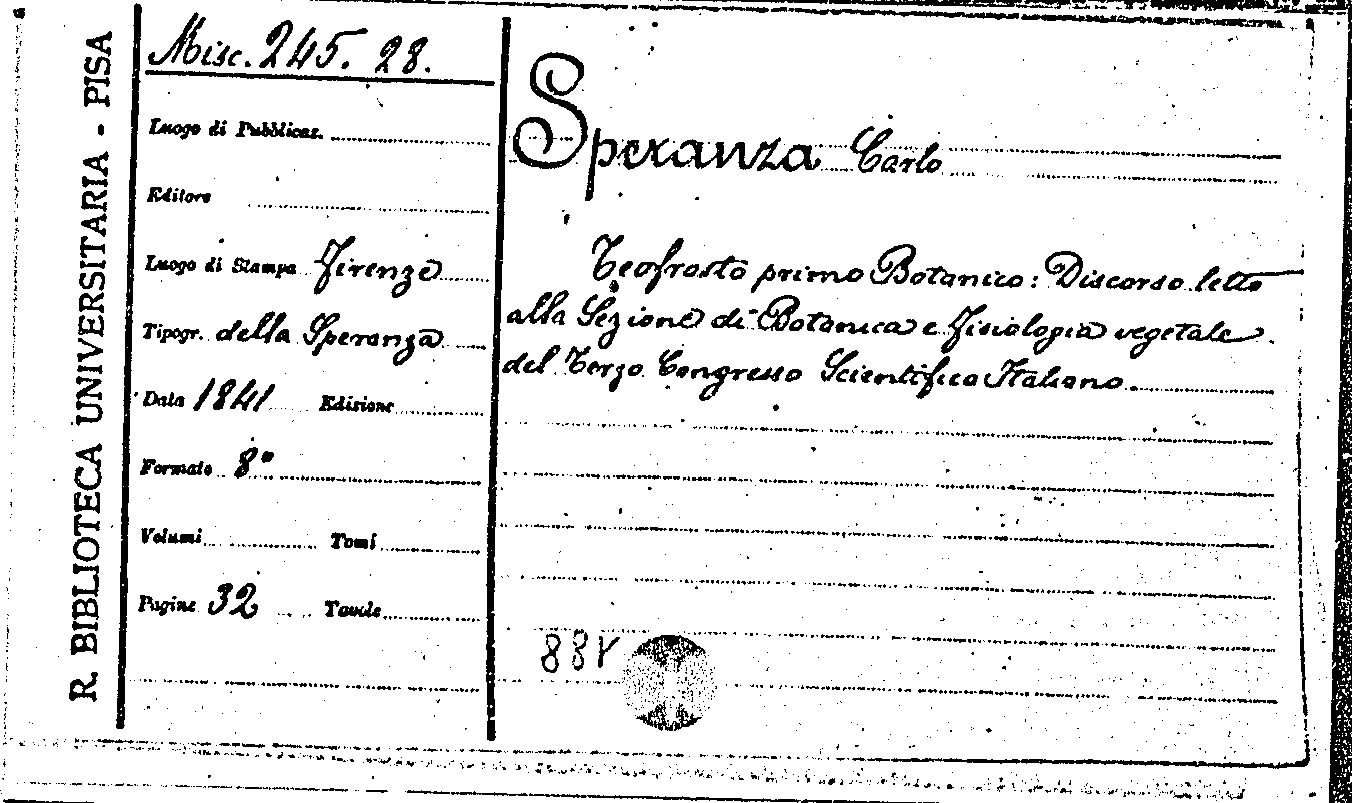 R. BIBLIOTECA UNIVERSITARIA - PISA
Misc. 245. 28.
Luogo di Pubblicaz.
Editore
Luogo di Stampa Firenze
Tipogr. della Speranza
Data 1841 Edizione
Formato 8°
Volumi Tomi
Pagine 32 Tavole
Speranza Carlo
Teofrasto primo Botanico: Discorso letto
alla Sezione di Botanica e Fisiologia vegetale
del Terzo Congresso Scientifico Italiano.